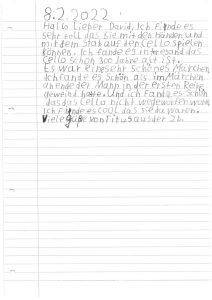 8.2.2022
Hallo lieber David, Ich finde es
sehr toll das sie mit den Händen und
mit dem Stab auf den Cello spielen
können. Ich fande es intresand das
Cello schon 300 Jahre alt ist.
Es war eine sehr schönes Märchen,
Ich fande es schön als im Märchen
an ende der Mann in der ersten Reihe
geweind hatte. Und ich fande es schön
das das Cello nicht wegeworfen wurde
Ich fande es cool das sie da waren.
Viele grüße von Titus aus der 2b.